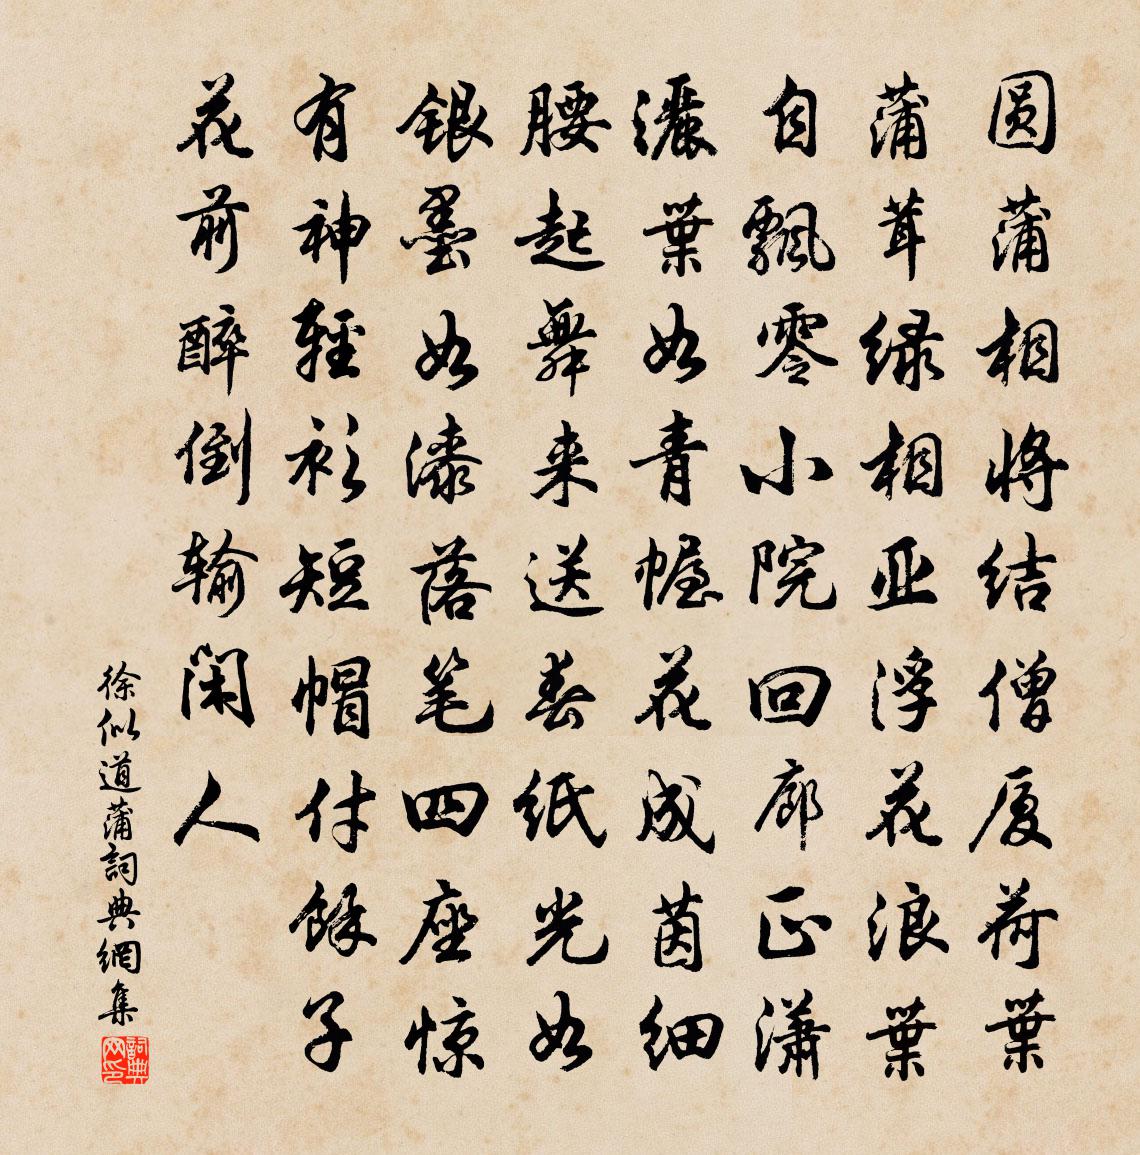 圆蒲相將结僧夏荷葉
蒲茸绿相亚浮花浪葉
自飄零小院回廊正潇
灑葉如青幄花成茵细
腰起舞来送春纸光如
銀墨如漆落笔四座惊
有神輕衫短帽付餘子
花前醉倒输闲人
徐似道蒲詞典網集
詞典网印